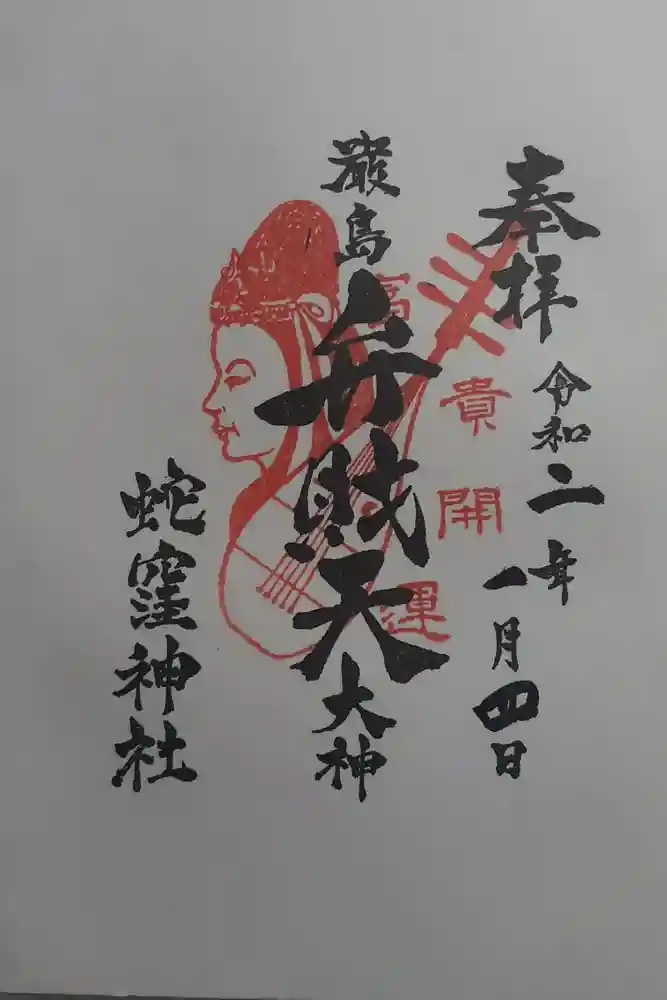 奉拝
令和二年
一月四日
富貴開運
厳島
弁財天
大神
蛇窪神社